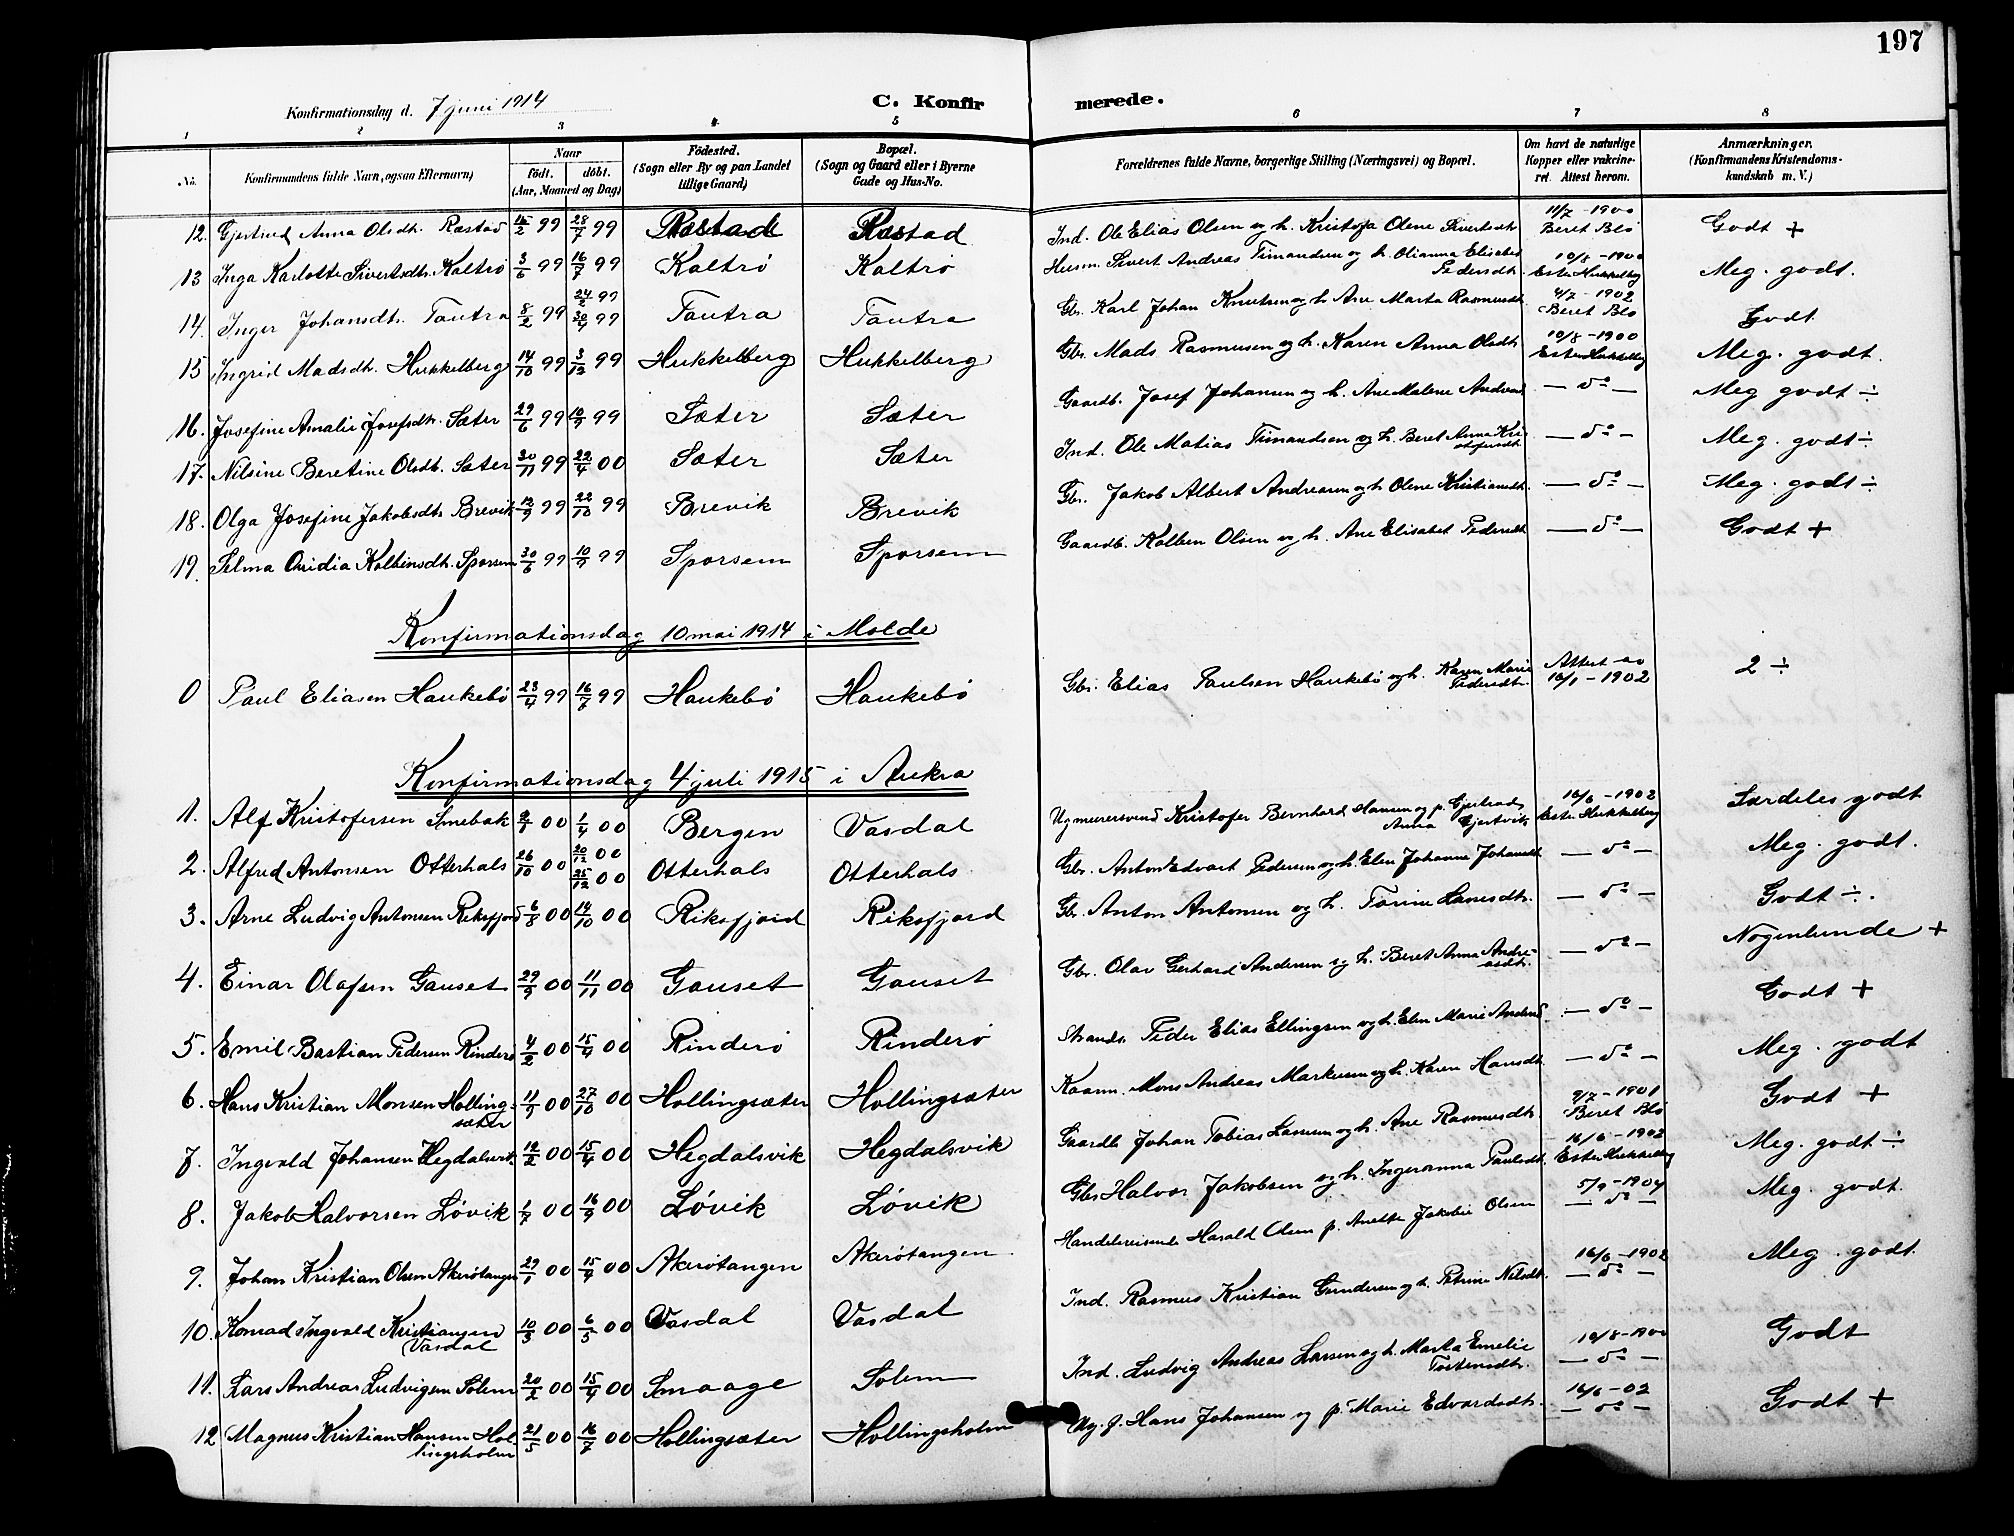 197
Konfirmationsdag d. 7 juni 1914
C. Konfirmerede.
1 2 3 4 5 6 7 8
No. Konfirmandens fulde Navn, ogsaa Efternavn) Naar født. døbt. (Aar, Maaned og Dag) Fødested. (Sogn eller By og paa Landet tillige Gaard) Bopæl. (Sogn og Gaard eller i Byerne Gade og Hus-No. Forældrenes fulde Navne, borgerlige Stilling (Næringsvei) og Bopæl. Om havt de naturlige Kopper eller vakcineret. Attest herom. Anmærkninger. (Konfirmandens Kristendomskundskab m. V.)
12. Gjertrud Anna Olsdtr. Ræstad 16/2 99 28/7 99 Ræstad Ræstad Ind. Ole Elias Olsen og h. Kristofa Olene Sivertsdtr 11/7 - 1900 Beret Blø Godt +
13 Inga Karlotte Sivertsdtr. Kaltrø 3/6 99 16/7 99 Kaltrø Kaltrø Husm. Sivert Andreas Timandsen og h. Olianna Elisabet Pedersdtr. 10/8 - 1900 Ester Hukkelberg Meg. godt.
14. Inger Johansdtr. Tautra 8/2 99 24/2 99 30/4 99 Tautra Tautra Gbr. Karl Johan Knutsen og h. Ane Marta Rasmusdtr 4/7 - 1902 Beret Blø Godt
15 Ingrid Madsdtr. Hukkelberg 14/10 99 3/12 99 Hukkelberg Hukkelberg Gbr. Mads Rasmusen og h. Karen Anna Olsdtr 10/8 - 1900 Ester Hukkelberg Meg. godt.
16. Josefine Amalie Josefsdtr. Sæter 29/6 99 10/9 99 Sæter Sæter Gaardb. Josef Johansen og h. Ane Malene — do — Meg godt ÷
17. Nilsine Beretine Olsdtr. Sæter 30/11 99 22/4 00 Sæter Sæter Ind. Ole Matias Timandsen og h. Beret Anna Kristofersdtr — do — Meg. godt ÷
18. Olga Josefine Jakobsdtr. Brevik 12/9 99 22/10 99 Brevik Brevik Gbr. Jakob Albert Andreasen og h. Olene Kristiansdtr. — do — Meg. godt ÷
19. Selma Ovidia Kolbinsdtr. Sporsem 30/6 99 10/9 99 Sporsem Sporsem Gaardb. Kolben Olsen og h. Ane Elisabet Pedersdtr — do — Godt +
Konfirmationsdag 10 mai 1914 i Molde
0 Paul Eliasen Haukebø 23/4 99 16/6 99 Haukebø Haukebø Gbr. Elias Paulsen Haukebø og h. Karen Marie Pedersdtr. Attest av 16/1 - 1902 2 ÷
Konfirmationsdag 4 juli 1915 i Aukra
1. Alf Kristofersen Smebak 2/1 00 1/4 00 Bergen Vasdal Ug murersvend Kristofer Bernhard Hansen og p. Gjertrud Anna Gjertvik 16/6 - 1902 Ester Hukkelberg Særdeles godt
2. Alfred Antonsen Otterhals 26/10 00 20/12 00 25/12 00 Otterhals Otterhals Gbr. Anton Edvart Pedersen og h. Elen Johanne Johansdtr — do — Meg. godt.
3. Arne Ludvig Antonsen Riksfjord 6/8 00 14/10 00 Riksfjord Riksfjord Gbr. Anton Antonsen og h. Torine Larsdtr. — do — Godt ÷.
4. Einar Olafsen Gauset 29/9 00 11/11 00 Gauset Gauset Gbr. Olav Gerhard Andersen og h. Beret Anna Andreasdtr. — do — Nogenlunde +
5. Emil Bastian Pedersen Rinderø 4/2 00 15/4 00 Rinderø Rinderø Strands. Peder Elias Ellingsen og h. Elen Marie — do — Godt +
6. Hans Kristian Monsen Hollingsæter 11/9 00 27/10 00 Hollingsæter Hollingsæter Kaarm. Mons Andreas Markusen og h. Karen Hansdtr — do — Meg. godt
7. Ingvald Johansen Hegdalsvik. 12/2 00 15/4 00 Hegdalsvik Hegdalsvik Gaardb Johan Tobias Larsen og h. Ane Rasmusdtr. 9/7 - 1901 Beret Blø Godt +
8. Jakob Halvorsen Løvik 1/7 00 16/9 00 Løvik Løvik Gbr Halvor Jakobsen og h. Ingeranna Paulsdtr. 16/6 - 1902 Ester Hukkelberg Meg. godt ÷
9. Johan Kristian Olsen Akerøtangen 29/1 00 15/4 00 Akerøtangen Akerøtangen Handelsreisende Harald Olsen p. Anette Jakobie Olsen 5/9 - 1904 — do — Meg. godt.
10. Konrad Ingvald Kristiansen Vasdal 10/3 00 6/5 00 Vasdal Vasdal Ind. Rasmus Kristian Gundersen og h. Petrine Nilsdtr. 16/6 - 1902 — do — Meg. godt.
11. Lars Andreas Ludvigsen Solem 20/2 00 15/4 00 Smaage Solem Ind. Ludvig Andreas Larsen og h. Marta Emelie Tostensdtr. 10/8 - 1900 — do — Godt
12 Magnus Kristian Hansen Hollingsholm 21/5 00 16/7 00 Hollingsæter Hollingsholm Ug. g. Hans Johansen og p. Marie Edvardsdtr. 16/6 - 02 — do — Godt +